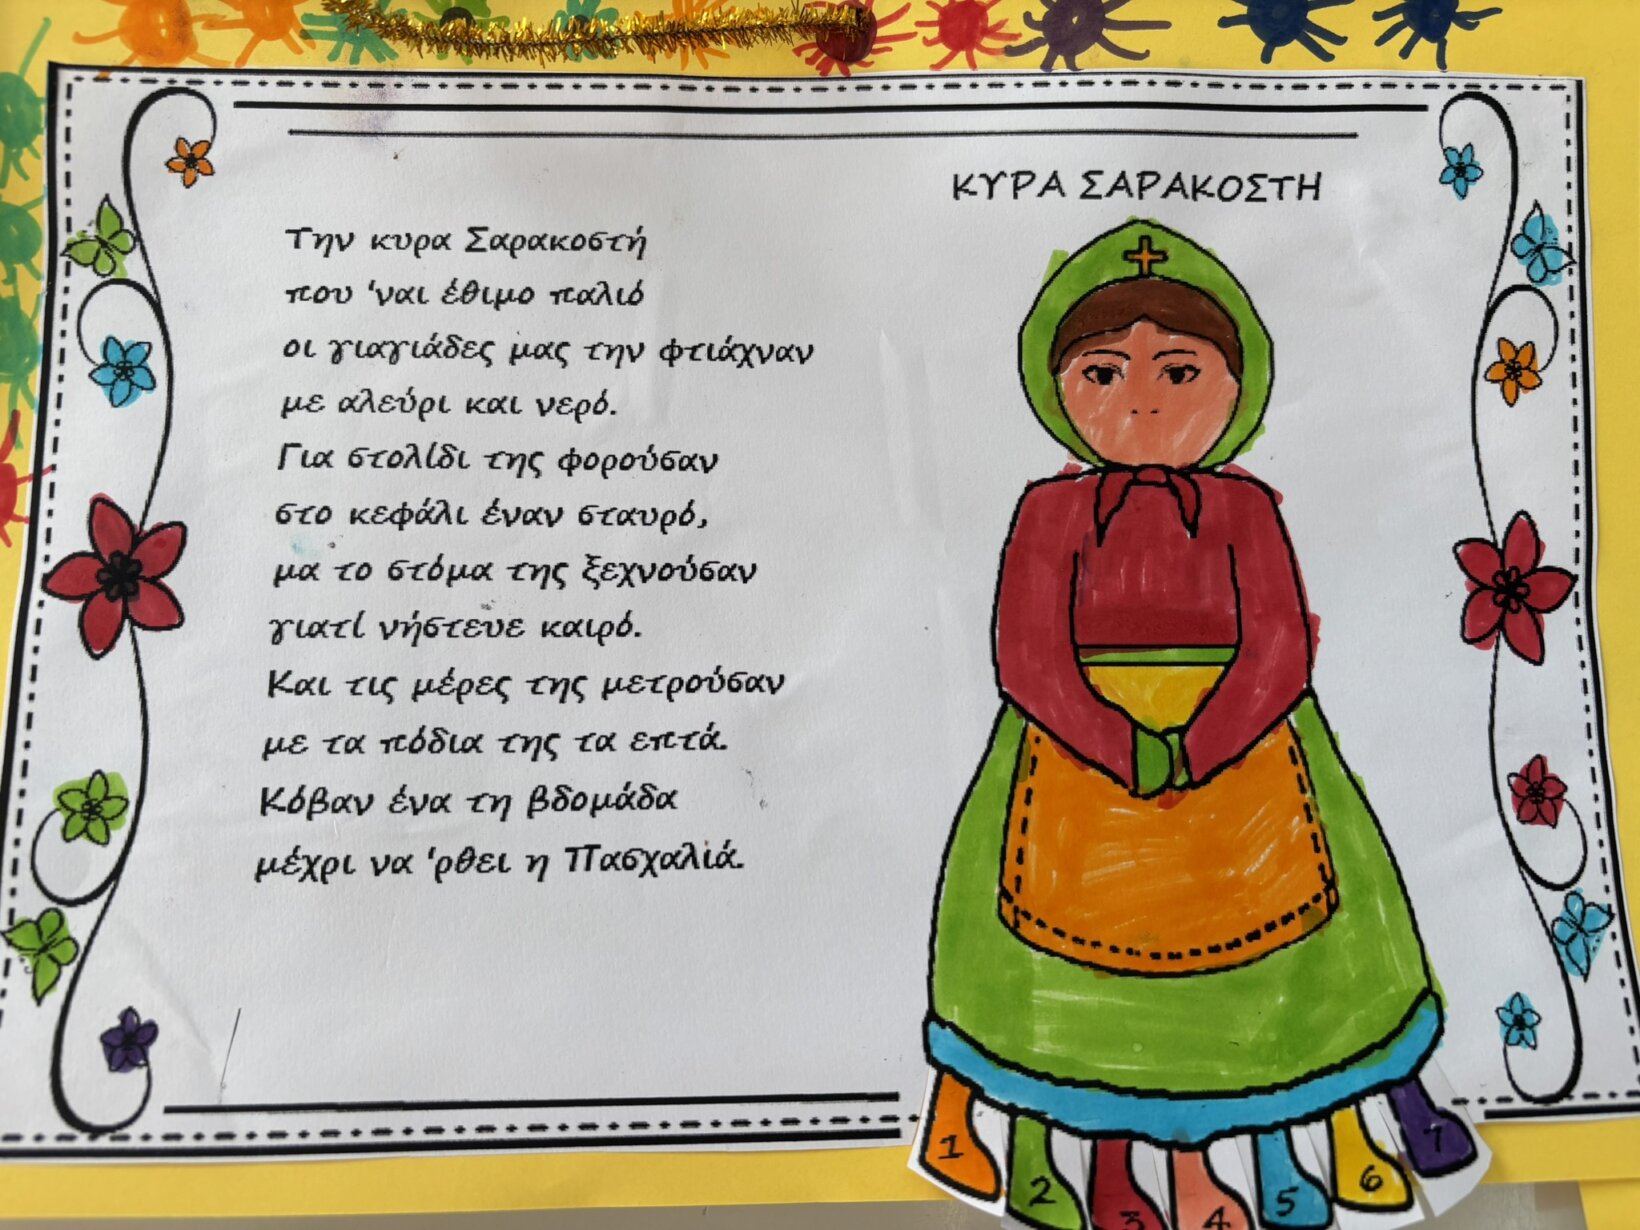 ΚΥΡΑ ΣΑΡΑΚΟΣΤΗ
Την κυρα Σαρακοστή
που 'ναι έθιμο παλιό
οι γιαγιάδες μας την φτιάχναν
με αλεύρι και νερό.
Για στολίδι της φορούσαν
στο κεφάλι έναν σταυρό,
μα το στόμα της ξεχνούσαν
γιατί νήστευε καιρό.
Και τις μέρες της μετρούσαν
με τα πόδια της τα επτά.
Κόβαν ένα τη βδομάδα
μέχρι να 'ρθει η Πασχαλιά.
1 2 3 4 5 6 7